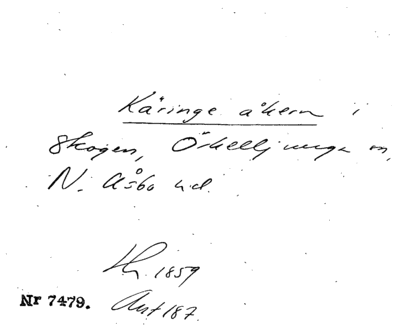 Käringe åkern i
skogen, Örkelljunga sn,
N. Åsbo hd.
Lh. 1859
Nr 7479. Ant 187.